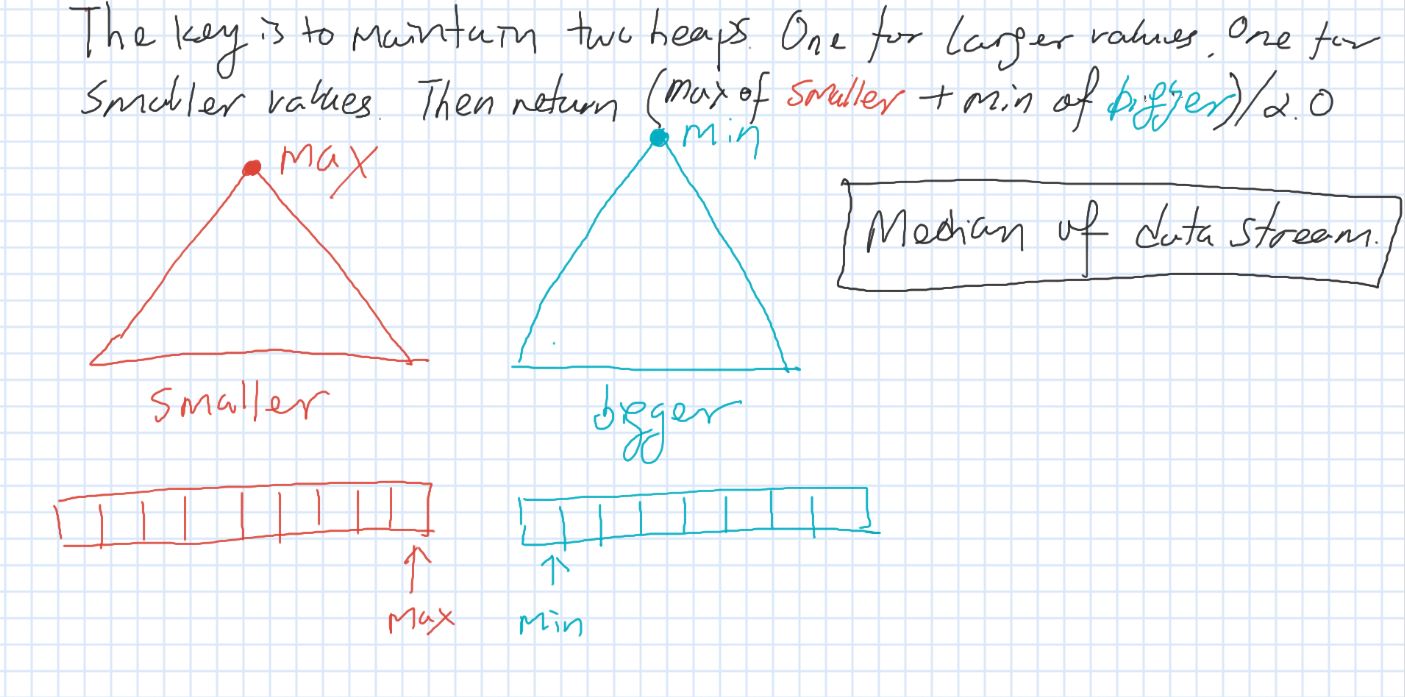 The key is to maintain two heaps. One for larger values. One for
smaller values. Then return (max of smaller + min of bigger)/2.0
max
min
Median of data stream.
smaller
bigger
max
min